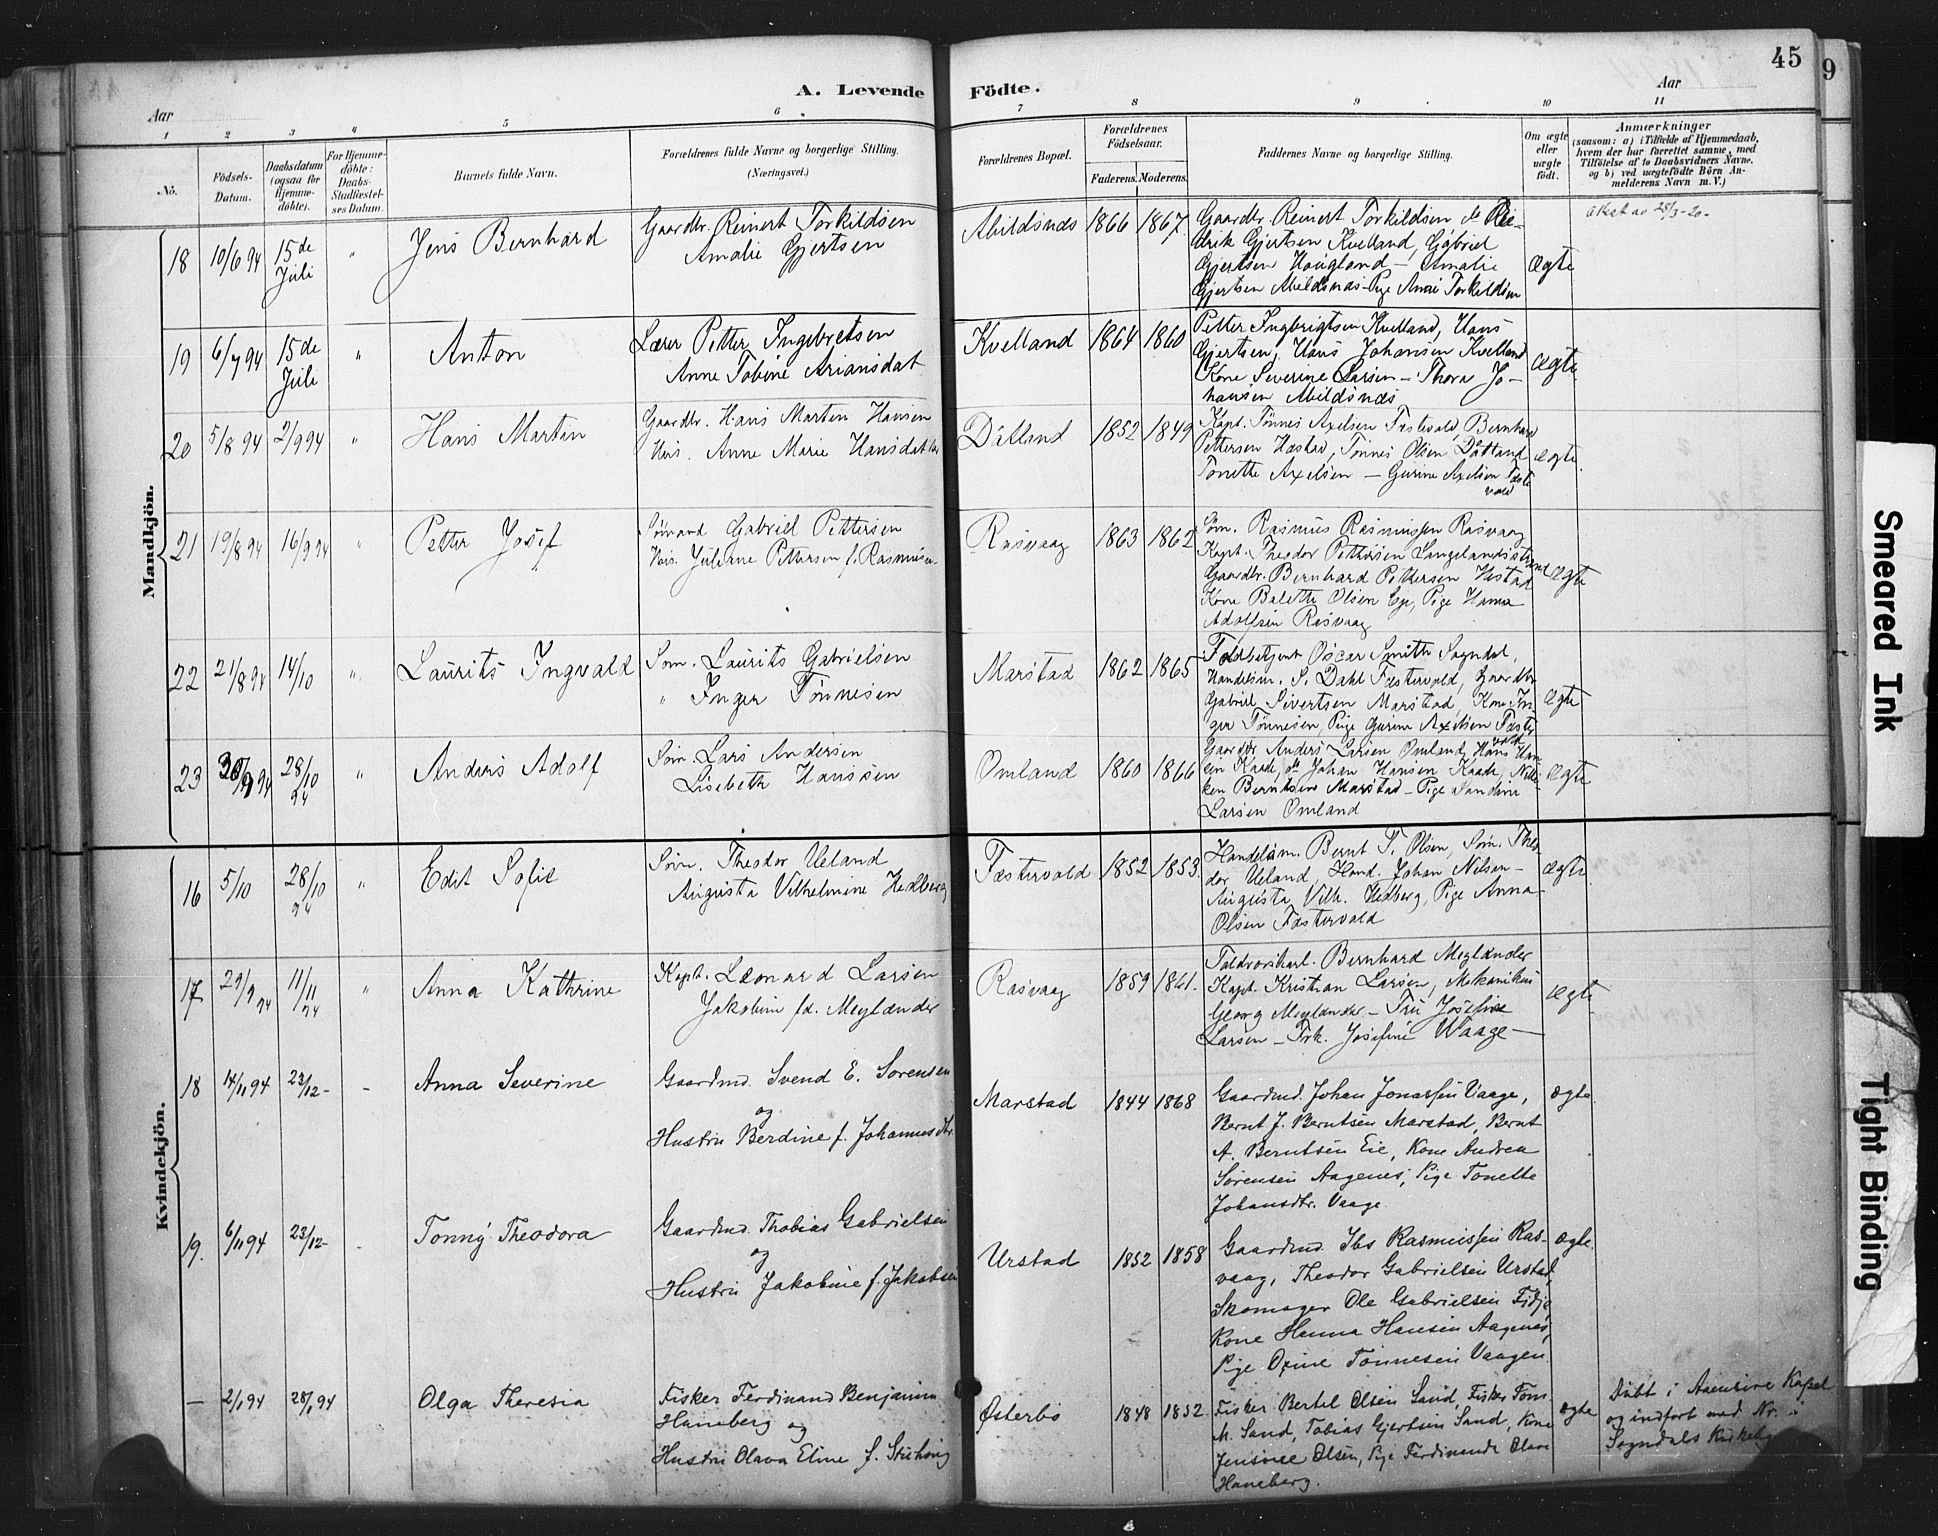 45
9
Aar
A. Levende Födte.
Aar
1 2 3 4 5 6 7 8 9 10 11
No.
Födsels-Datum.
Daabsdatum (ogsaa for Hjemme-döbte).
For Hjemme-döbte: Daabs-Stadfæstel-ses Datum.
Barnets fulde Navn.
Forældrenes fulde Navne og borgerlige Stilling.
(Næringsvei.)
Forældrenes Bopæl.
Forældrenes Födselsaar.
Faderens. Moderens.
Faddernes Navne og borgerlige Stilling.
Om ægte eller uægte født.
Anmærkninger
(saasom: a) i Tilfælde af Hjemmedaab,
hvem der har forrettet samme, med
Tilföielse af to Daabsvidners Navne.
og b) ved uægtefödte Börn An-
melderens Navn m. V.)
Mandkjön.
18 10/6 94 15de Juli " Jens Bernhard
Gaardbr. Reinert Torkildsen
Amalie Gjertsen
Abildsnæs 1866 1867
Gaardbr. Reinert Torkildsen
drik Gjertsen Kvelland, Gabriel
Gjertsen Haugland – Amalie
Gjertsen Abildsnæs – Pige Torkildsen
Ægte
Attest av 28/3-20.
19 6/7 94 15de Juli " Anton
Lærer Petter Ingebretsen
Anne Tobine Ariansdat
Kvelland 1864 1860
Petter Ingbrigtsen Kvelland, Hans
Gjertsen, Hans Johansen Kvelland
Kone Severine Larsen – Thora Jo-
hansen Abildsnæs
Ægte
20 5/8 94 2/9 94 " Hans Martin
Gaardbr. Hans Martin Hansen
Anne Marie Hansdat
Dåtland 1852 1849
Kapt. Tønnes Axelsen Fæstevold, Bernhard
Pettersen Hæstad, Tønnes Olsen Dåtland
Tonette Axelsen – Gurine Axelsen Fæste
vold
Ægte
21 19/8 94 16/9 94 " Petter Josef
Sømand Gabriel Pettersen
Juliane Pettersen f. Rasmussen
Rasvaag 1863 1862
Søm. Rasmus Rasmussen Rasvaag
Kapt. Theodor Pettersen Langelandsstrand
Gaardbr. Bernhard Pettersen Hestad
Kone Balette Olsen Eje, Pige Hanna
Adolfsen Rasvaag
Ægte
22 21/8 94 14/10 " Laurits Ingvald
Søm. Laurits Gabrielsen
" Inger Tønnesen
Marstad 1862 1865
Oscar Smith Sogndal,
Handelsm. S. Dahl Fæstervold, Gaardbr
Gabriel Sivertsen Marstad, Kone In-
ger Tønnesen, Pige Gurine Axelsen Fæste
vold
Ægte
23 30/9 94 28/10 94 " Anders Adolf
Søm. Lars Andersen
Lisebeth Hanssen
Omland 1860 1866
Gaardbr Anders Larsen Omland, Hans Han-
sen Kaade, do Johan Hansen Kaade,
Berntsen Marstad – Pige Sandine
Larsen Omland
Ægte
Kvindekjön.
16 5/10 28/10 94 " Edit Sofie
Søm. Theodor Ueland
Augusta Vilhelmine Hedberg
Fæstervold 1852 1853.
Handelsm. Bernt T. Olsen, Søm. Theo
dor Ueland, Hand. Johan Nilsen –
Augusta Vilh. Hedberg, Pige Anna
Olsen Fæstervold
Ægte
17 29/9 94 11/11 94 " Anna Kathrine
Kapt. Leonard Larsen
Jakobine fd. Meglænder
Rasvaag 1859 1861.
Bernhard Meglænder
Kapt. Kristian Larsen, Mekanikus
Georg Meglænder – Fru Josefine
Larsen – Frk. Josefine Waage –
Ægte
18 14/11 94 23/12 – Anna Severine
Gaardmd. Svend E. Sørensen
og
Hustru Berdine f. Johannesdtr.
Marstad 1844 1868
Gaardmd. Johan Jonassen Vaage,
Bernt J. Berntsen Marstad, Bernt
A. Berntsen Eie, Kone Andrea
Sørensen Aagenes, Pige Tonette
Johansdtr. Vaage.
Ægte.
19. 6/11 94 23/12 – Tonny Theodora
Gaardmd. Thobias Gabrielsen
og
Hustru Jakobine f. Jakobsen
Urstad 1852 1858
Gaardmd. Ibs Rasmussen Ras-
vaag, Theodor Gabrielsen Urstad,
Skomager Ole Gabrielsen Fidje
Kone Hanna Hansen Aagenes,
Pige Oxine Tønnesen Vaagen.
Ægte.
– 2/1 94 28/1 94 Olga Theresia
Fisker Ferdinand Benjamin
Haneberg og
Hustru Olava Eline f.
Østerbø 1848 1852.
Fisker Bertel Olsen Sand, Fisker Tom
M. Sand, Tobias Gjertsen Sand, Kone
Jensine Olsen, Pige Ferdinande Olava
Haneberg.
ægte
Døbt i Aaensire Kapel
og indført med Nr.
Sogndals Kirkebog
Smeared Ink
Tight Binding